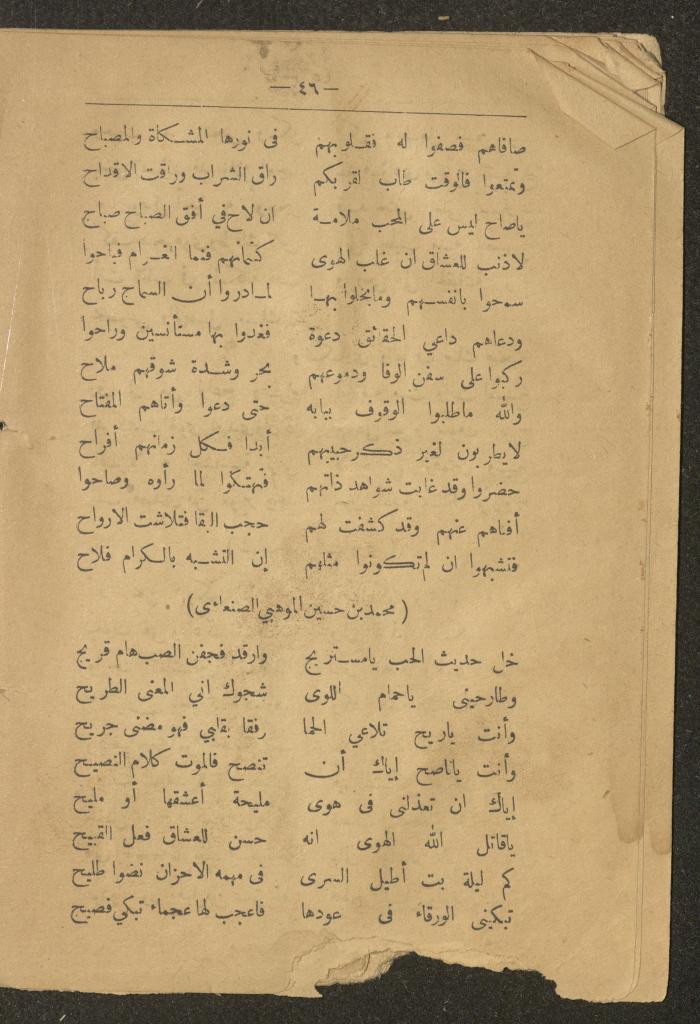 — ٤٦ —
صافاهم فصفوا له فقلوبهم في نورها المشكاة والمصباح
وتمتعوا فالوقت طاب لقربكم راق الشراب وراقت الاقداح
ياصاح ليس على المحب ملامة ان لاح في أفق الصباح صباح
لاذنب للعشاق ان غلب الهوى كتمانهم فنما الغرام فباحوا
سمحوا بانفسهم ومابخلوا بها لما دروا أن السماح رباح
ودعاهم داعي الحقائق دعوة فغدوا بها مستأنسين وراحوا
ركبوا على سفن الوفا ودموعهم بحر وشدة شوقهم ملاح
والله ماطلبوا الوقوف ببابه حتى دعوا وأتاهم المفتاح
لايطربون لغير ذكر حبيبهم أبدا فكل زمانهم أفراح
حضروا وقد غابت شواهد ذاتهم فتهتكوا لما رأوه وصاحوا
أفناهم عنهم وقد كشفت لهم حجب البقا فتلاشت الارواح
فتشبهوا ان لم تكونوا مثلهم إن التشبه بالكرام فلاح
( محمد بن حسين الموهبي الصنعاءى )
خل حديث الحب يامستريح وارقد فجفن الصب هام قريح
وطارحيني ياحمام اللوى شجوك اني المعنى الطريح
وأنت ياريح تلاعي الحما رفقا بقلبي فهو مضنى جريح
وأنت ياناصح إياك أن تنصح فالموت كلام النصيح
إياك ان تعذلنى فى هوى مليحة أعشقها أو مليح
ياقاتل الله الهوى انه حسن للعشاق فعل القبيح
كم ليلة بت أطيل السرى فى مهمه الاحزان نضوا طليح
تبكينى الورقاء فى عودها فاعجب لها عجماء تبكي فصيح